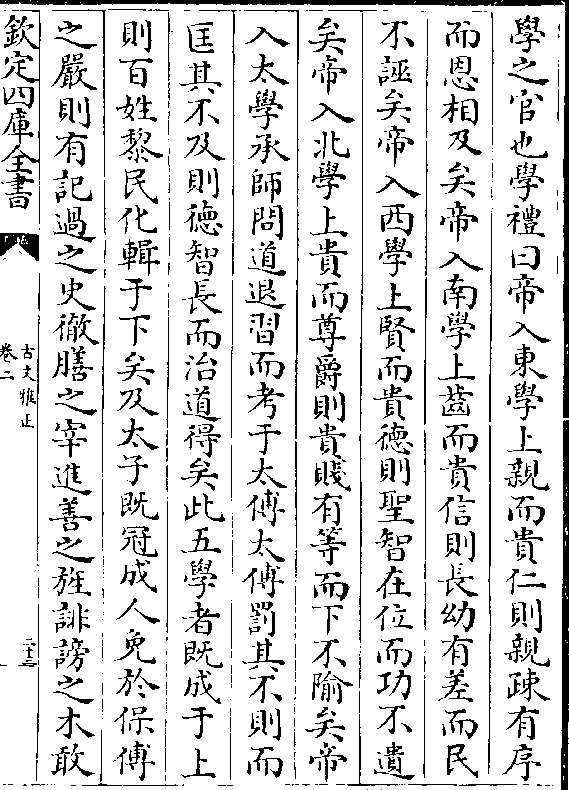 學之官也學禮曰帝入東學上親而貴仁則親疎有序
而恩相及矣帝入南學上齒而貴信則長幼有差而民
不誣矣帝入西學上賢而貴德則聖智在位而功不遺
矣帝入北學上貴而尊爵則貴賤有等而下不隃矣帝
入太學承師問道退習而考于太傅太傅罰其不則而
匡其不及則徳智長而治道得矣此五學者既成于上
則百姓黎民化輯于下矣及太子既冠成人免於保傅
之嚴則有記過之史徹膳之宰進善之旌誹謗之木敢
欽定四庫全書
古文雅正
卷二
二十三